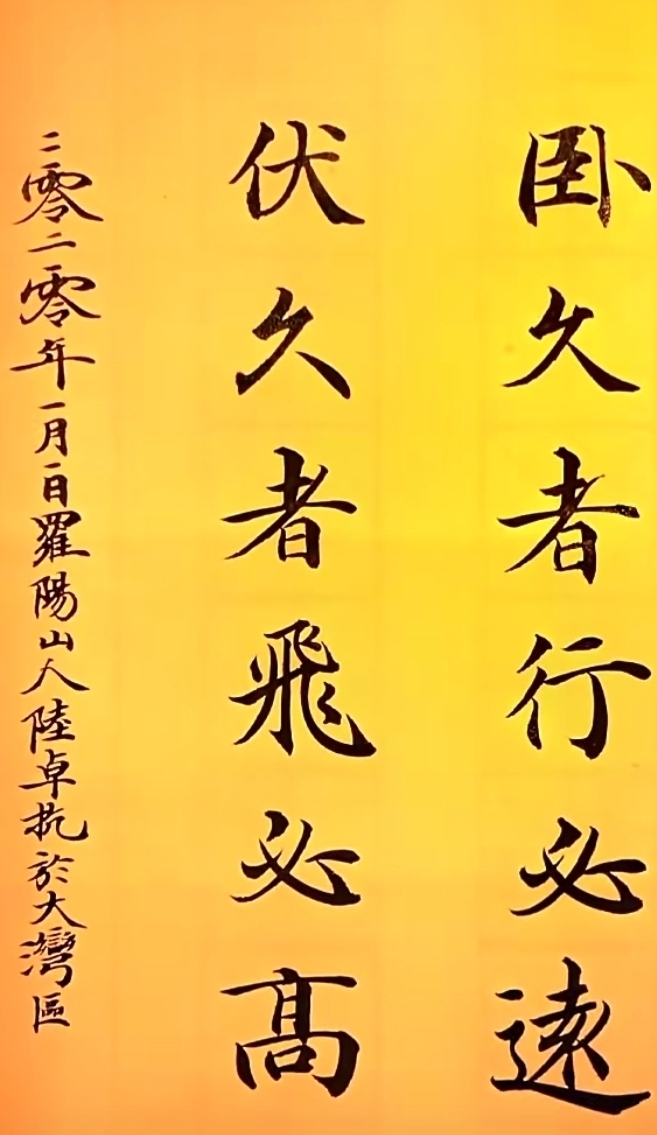 卧久者行必遠
伏久者飛必高
二零二零年一月一日羅陽山人陸卓抗於大灣區